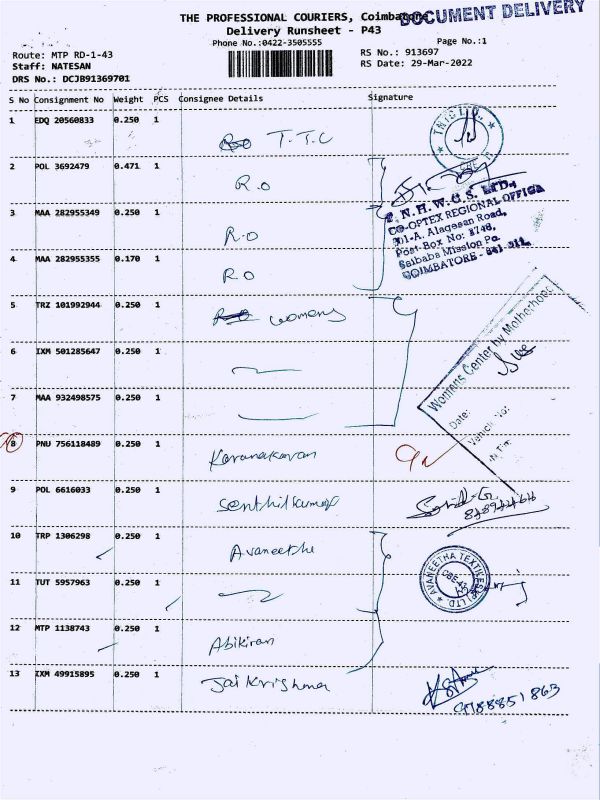 THE PROFESSIONAL COURIERS, Coimbatore
DOCUMENT DELIVERY
Delivery Runsheet - P43
Phone No.:0422-3505555
Page No.:1
Route: MTP RD-1-43
RS No.: 913697
Staff: NATESAN
RS Date: 29-Mar-2022
DRS No.: DCJB91369701
S No Consignment No Weight PCS Consignee Details Signature
1 EDQ 20560833 0.250 1
T.T.C
2 POL 3692479 0.471 1
R.O
3 MAA 282955349 0.250 1
R.O
4 MAA 282955355 0.170 1
R.O
T.N.H.W.C.S. LTD.,
CO-OPTEX REGIONAL OFFICE
Alagesan Road,
Post Box No: 3748,
Saibaba Mission Po
COIMBATORE - 641 011.
5 TRZ 101992944 0.250 1
womens
6 IXM 501285647 0.250 1
7 MAA 932498575 0.250 1
Womens Center by Motherhood
Date:
Vehicle No:
8 PNU 756118489 0.250 1
Karunakaran
9 POL 6616033 0.250 1
Senthilkumar
10 TRP 1306298 0.250 1
Avaneetha
11 TUT 5957963 0.250 1
AVANEETHA TEXTILES (P) LTD
12 MTP 1138743 0.250 1
Abikiran
13 IXM 49915895 0.250 1
Jai Krishna